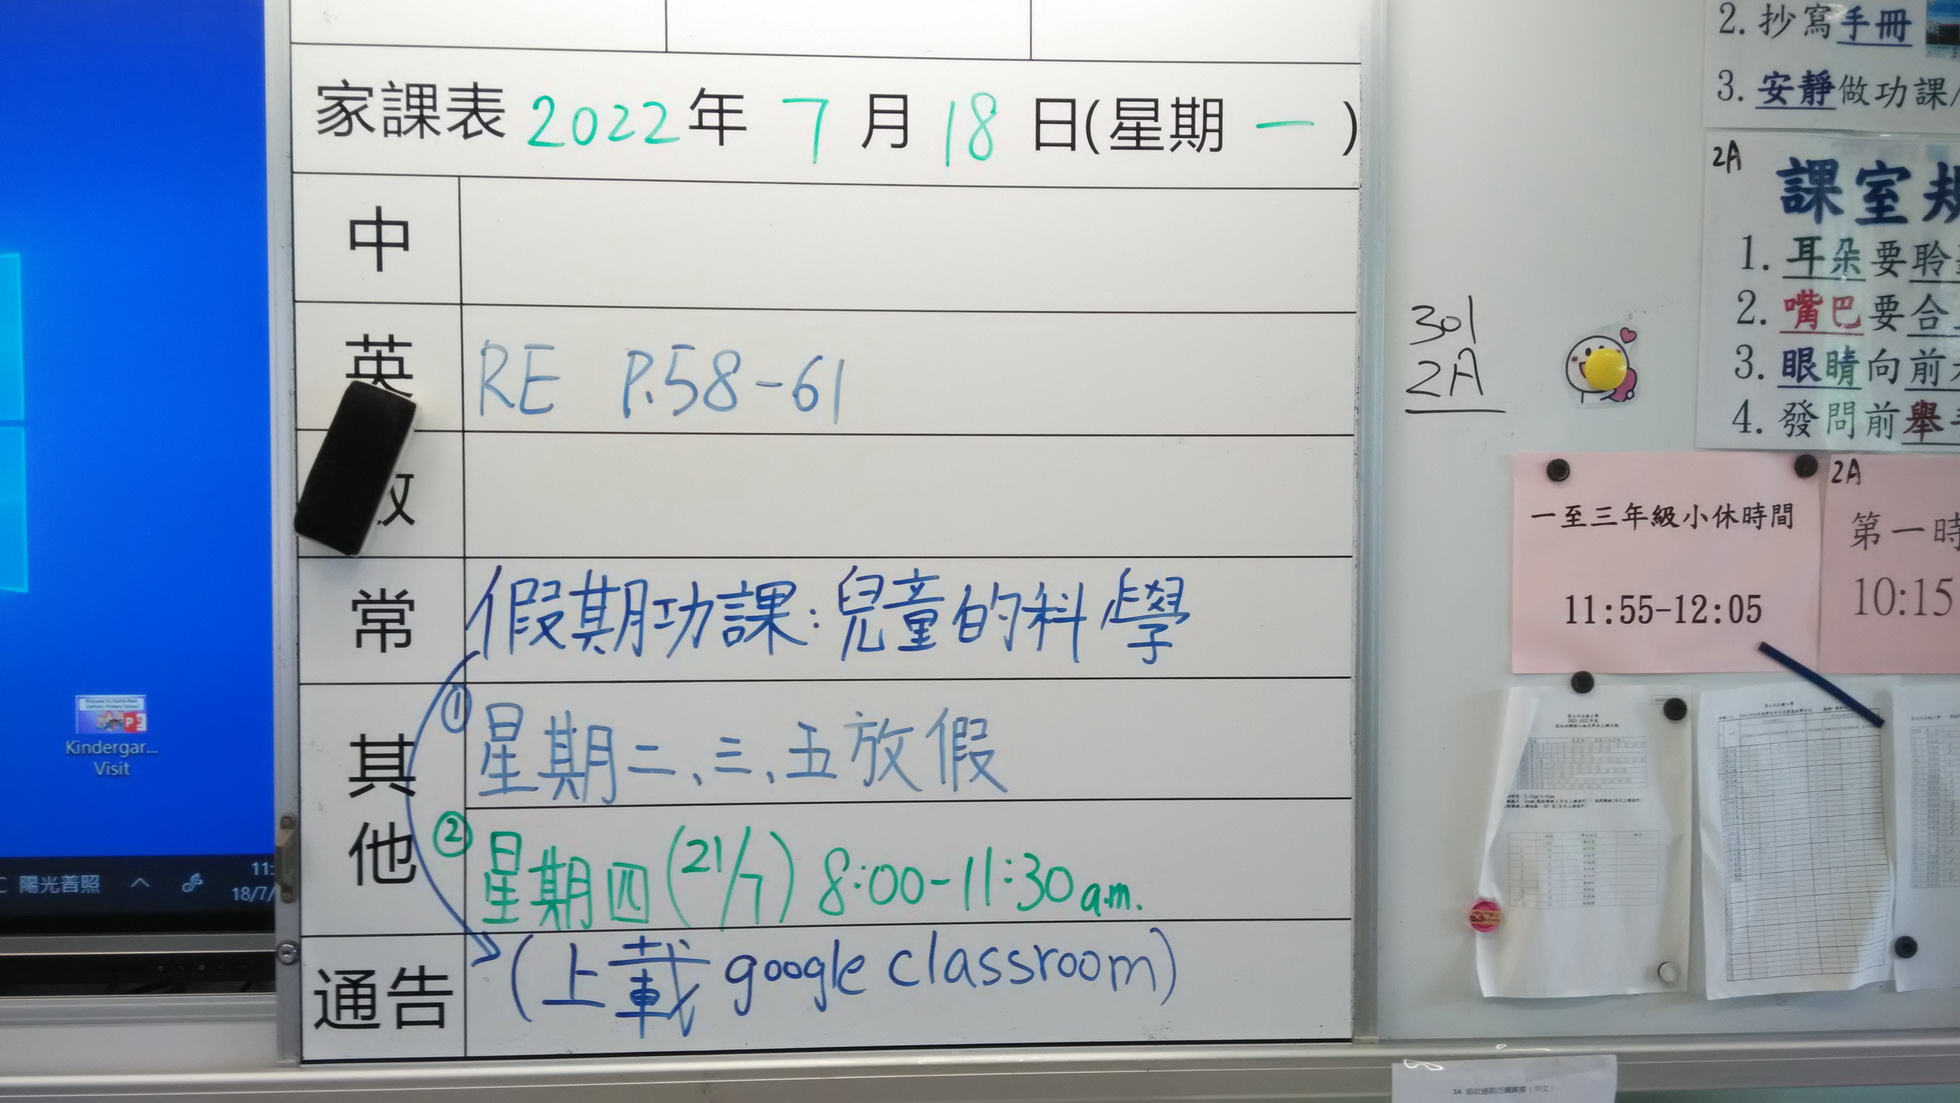 家課表 2022年 7月 18日(星期 一)
中
英 RE P.58-61
常 假期功課:兒童的科學
其他
① 星期二、三、五放假
② 星期四(21/7) 8:00-11:30a.m.
通告 (上載 google classroom)
301
2A
2. 抄寫手冊
3. 安靜做功課/
2A
課室
1. 耳朵要聆
2. 嘴巴要合
3. 眼睛向前
4. 發問前舉
一至三年級小休時間
11:55-12:05
2A
第一時
10:15
Kindergar...
Visit
陽光普照
11:
18/7/